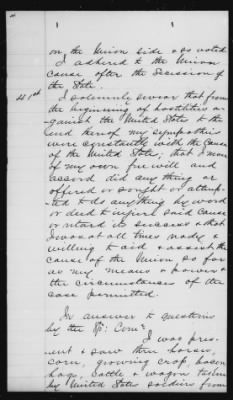 on the Union side & so voted
I adhered to the Union
cause after the Secession of
the State.
41st I solemnly swear that from
the beginning of hostilities
against the United States to the
end thereof my sympathies
were constantly with the Cause
of the United States; that I never
of my own free will and
accord did any thing or
offered or sought or attemp-
ted to do anything by word
or deed to injure said Cause
or retard its success & that
I was at all times ready &
willing to aid & assist the
cause of the Union, so far
as my means & power &
the circumstances of the
case permitted.
In answer to questions
by the Spc: Com:
I was pres-
ent & saw three horses,
corn, growing crop, bacon
hogs, cattle & wagon taken
by United States soldiers from